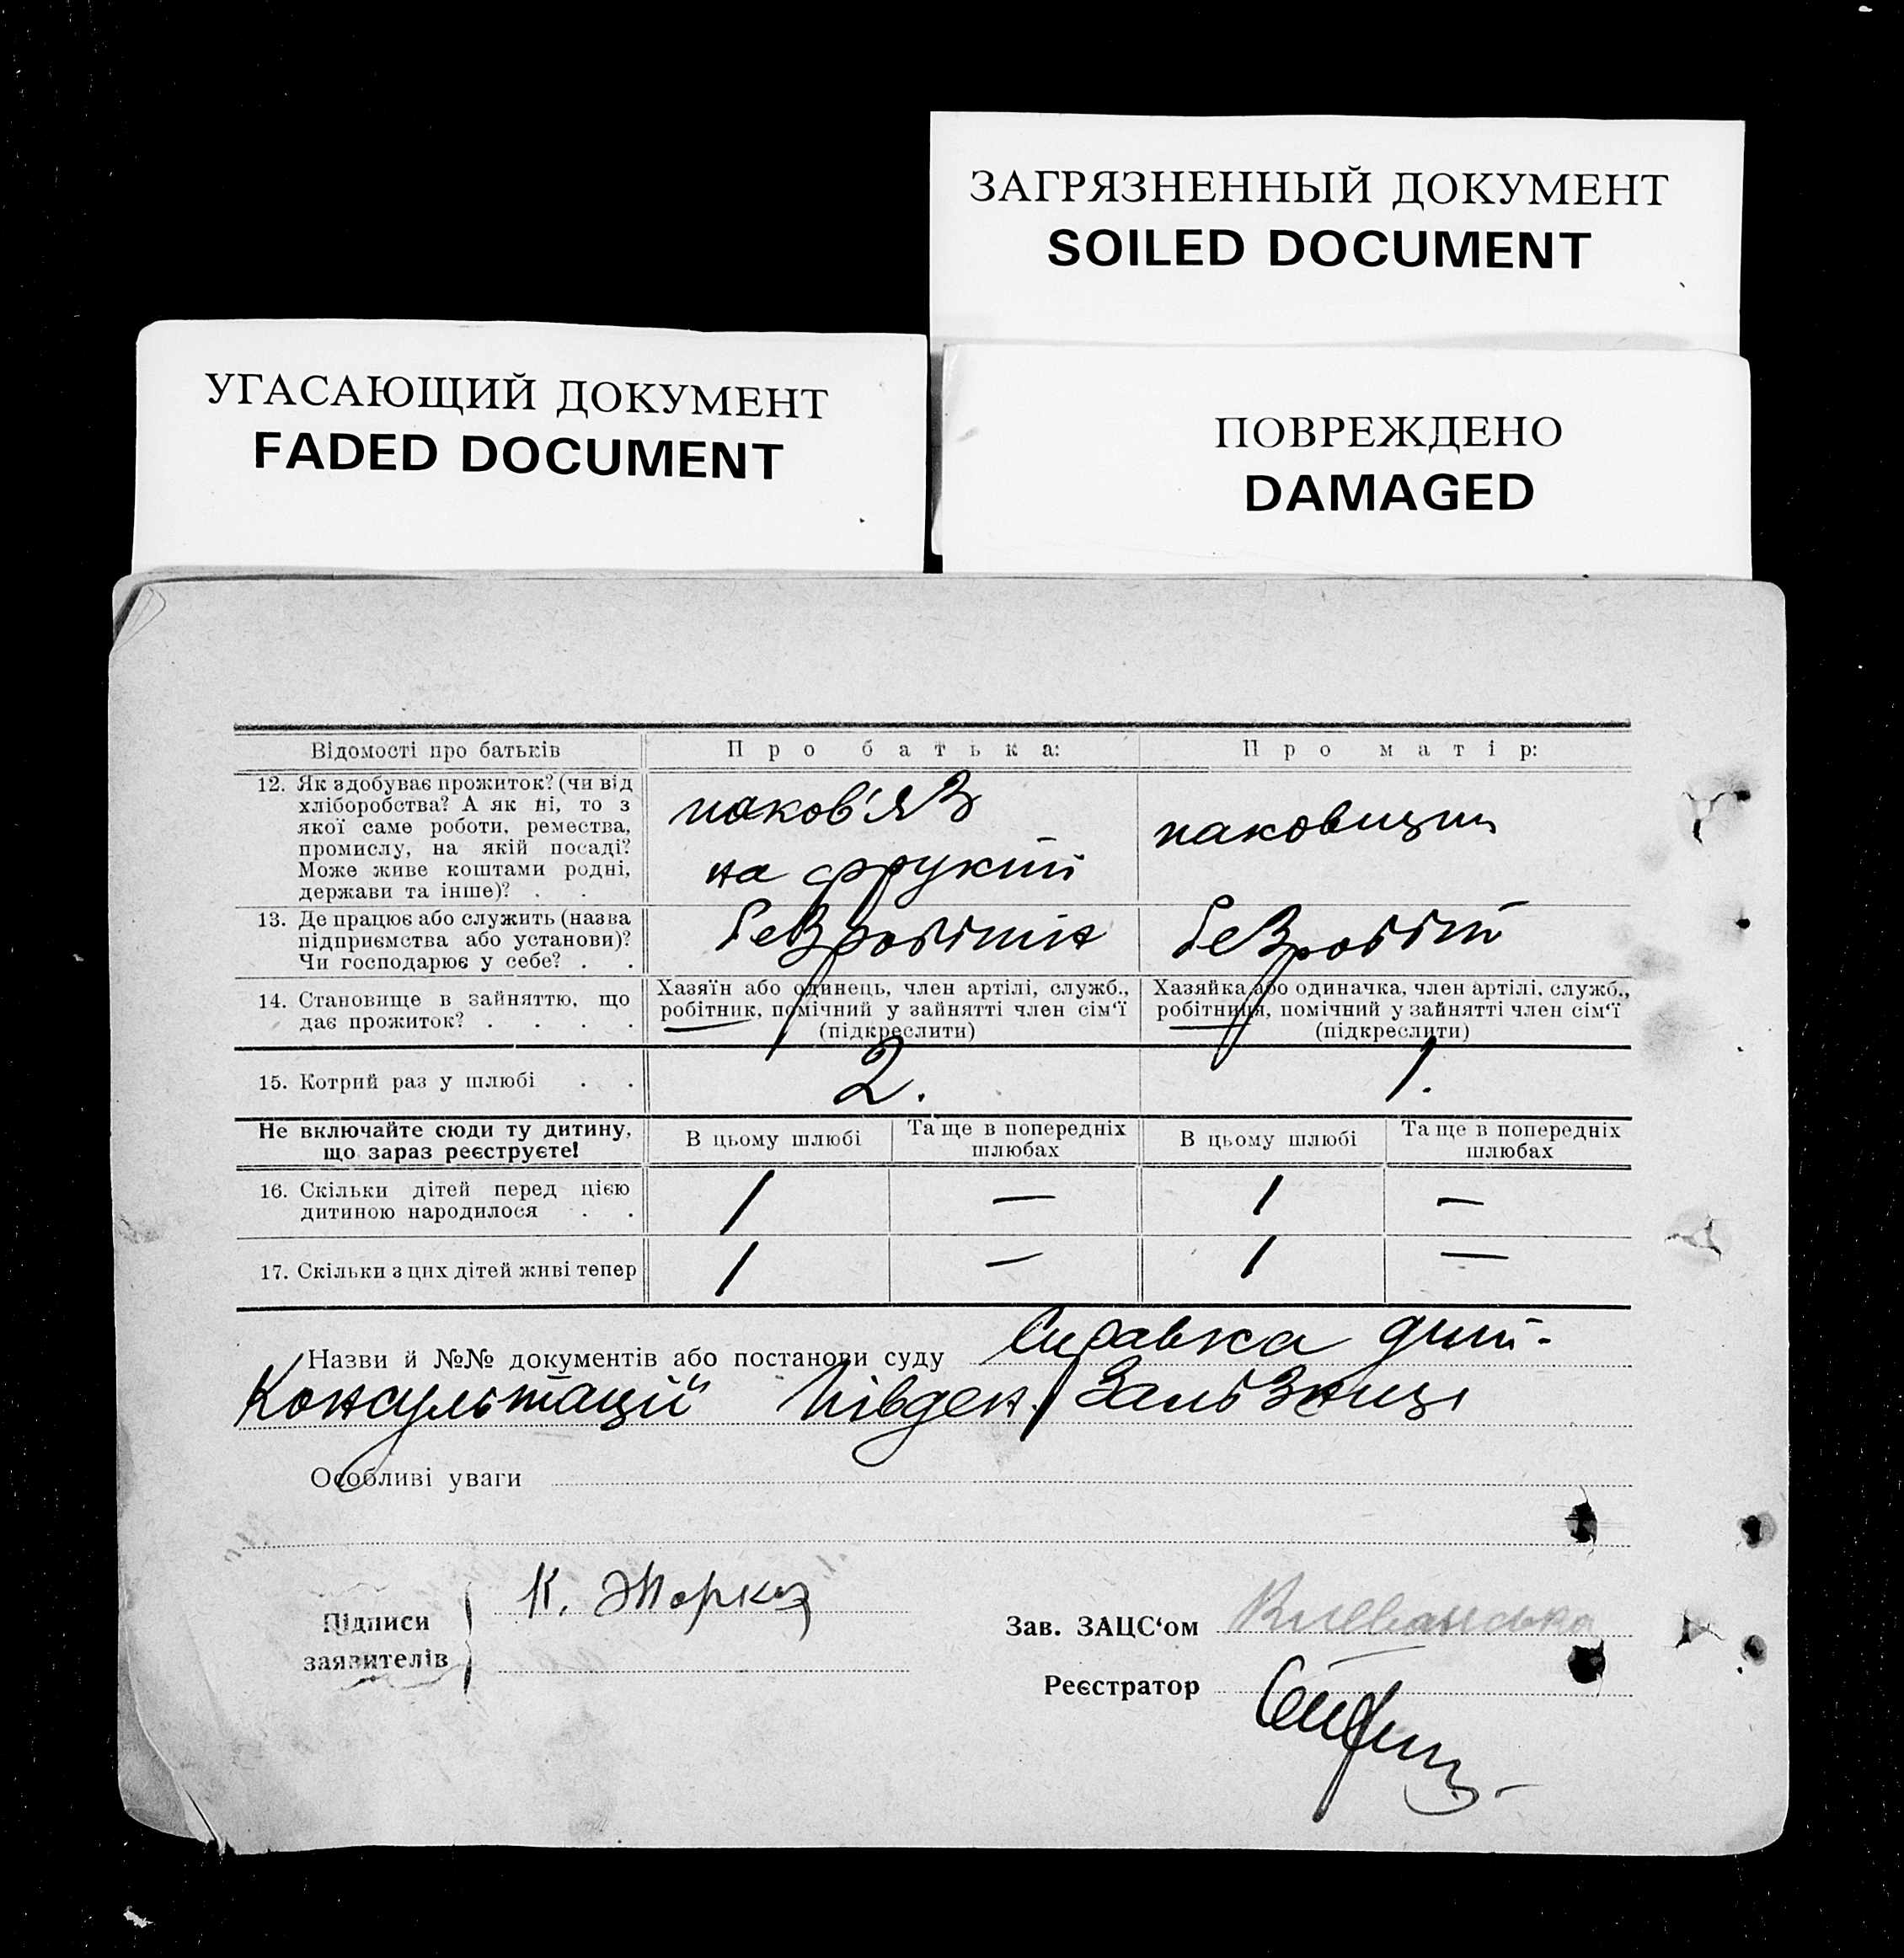 ЗАГРЯЗНЕННЫЙ ДОКУМЕНТ
SOILED DOCUMENT
УГАСАЮЩИЙ ДОКУМЕНТ
FADED DOCUMENT
ПОВРЕЖДЕНО
DAMAGED
Відомості про батьків
Про батька:
Про матір:
12. Як здобуває прожиток? (чи від
хліборобства? А як ні, то з
якої саме роботи, ремества,
промислу, на якій посаді?
Може живе коштами родні,
держави та інше)? . .
паков'яз
на фрукти
паковщиц
13. Де працює або служить (назва
підприємства або установи)?
Чи господарює у себе? . .
безробітні
безробіт
14. Становище в зайняттю, що
дає прожиток? . . . .
Хазяїн або одинець, член артілі, служб.,
робітник, помічний у зайнятті член сім‘ї
(підкреслити)
Хазяйка або одиначка, член артілі, служб.,
робітниця, помічний у зайнятті член сім‘ї
(підкреслити)
15. Котрий раз у шлюбі . .
2.
1.
Не включайте сюди ту дитину,
що зараз реєструєте!
В цьому шлюбі
Та ще в попередніх
шлюбах
В цьому шлюбі
Та ще в попередніх
шлюбах
16. Скільки дітей перед цією
дитиною народилося . .
1 — 1 —
17. Скільки з цих дітей живі тепер
1 — 1 —
Назви й №№ документів або постанови суду Справка дит-
Консультації Півден. Залізниці
Особливі уваги
Підписи
заявителів
К.
Зав. ЗАЦС‘ом
Реєстратор